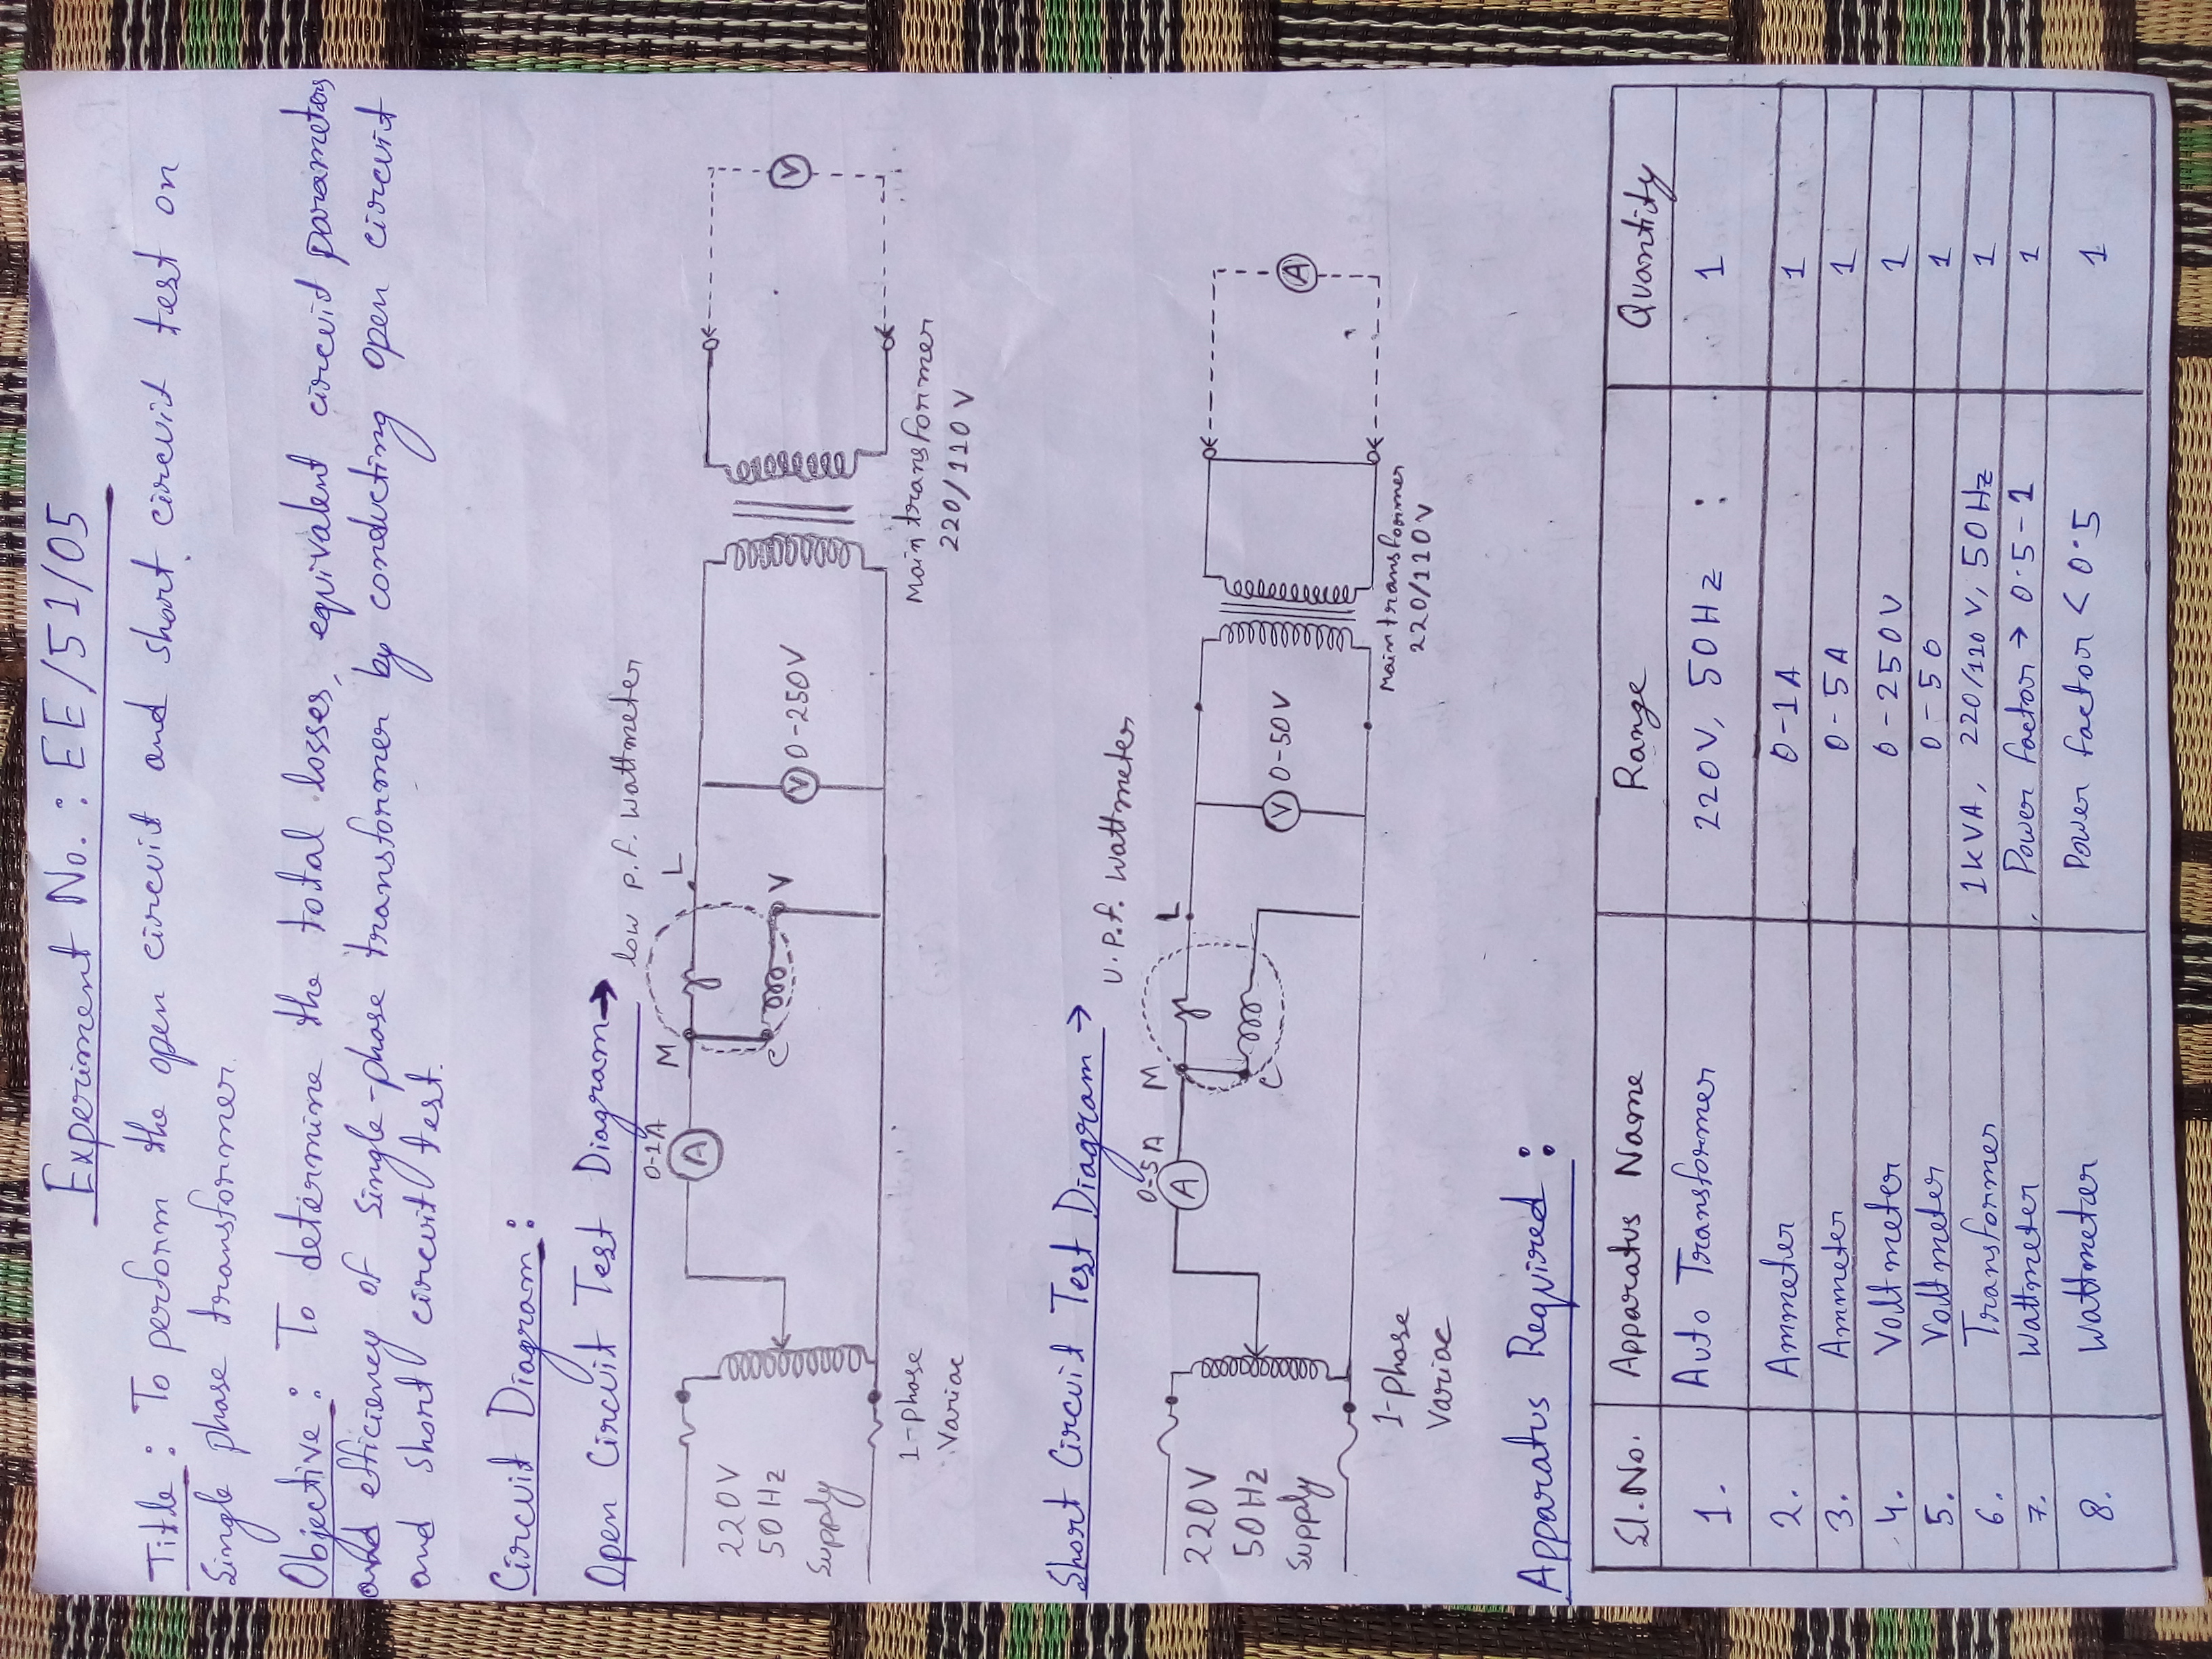 Experiment No. : EE/51/05
Title : To perform the open circuit and short circuit test on
Single phase transformer.
Objective : To determine the total losses, equivalent circuit parameters
and efficiency of Single-phase transformer by conducting open circuit
and short circuit test.
Circuit Diagram :
Open Circuit Test Diagram →
low p.f. wattmeter
0-1A
M
L
A
220V
50 Hz
Supply
C
V
V
0-250V
V
1-phase
Variac
Main transformer
220/110 V
Short Circuit Test Diagram →
U.P.f. wattmeter
0-5A
M
L
A
220V
50Hz
Supply
C
V
0-50V
A
1-phase
Variac
Main transformer
220/110V
Apparatus Required :
Sl.No. Apparatus Name Range Quantity
1. Auto Transformer 220V, 50Hz : 1
2. Ammeter 0-1A 1
3. Ammeter 0-5A 1
4. Voltmeter 0-250V 1
5. Voltmeter 0-50 1
6. Transformer 1kVA, 220/110 V, 50 Hz 1
7. Wattmeter Power factor → 0.5-1 1
8. Wattmeter Power factor < 0.5 1